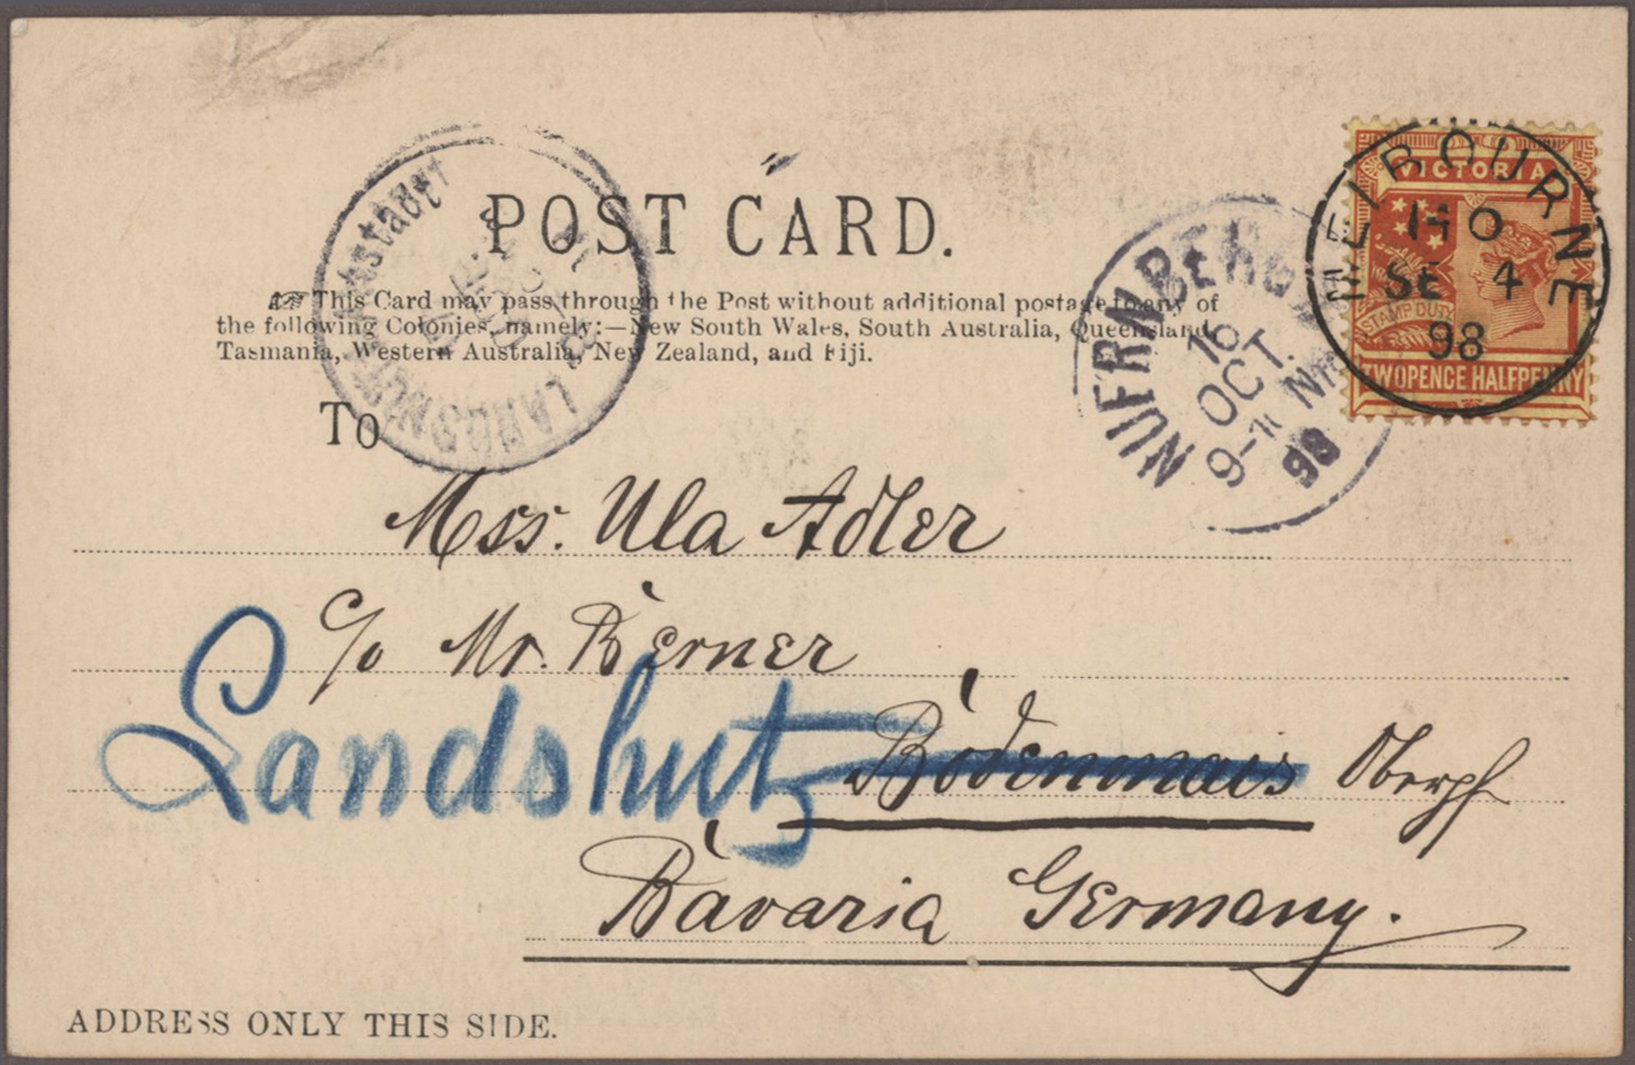 POST CARD.
This Card may pass through the Post without additional postage to any of
the following Colonies, namely:—New South Wales, South Australia, Queensland,
Tasmania, Western Australia, New Zealand, and Fiji.
To
Mss. Ula Adler
c/o Mr. Berner
Landshut Bodenmais Oberpf
Bavaria Germany.
ADDRESS ONLY THIS SIDE.
MELBOURNE
SE 4
98
VICTORIA
STAMP DUTY
TWOPENCE HALFPENNY
NUERNBERG
16
OCT.
98
LANDSHUT